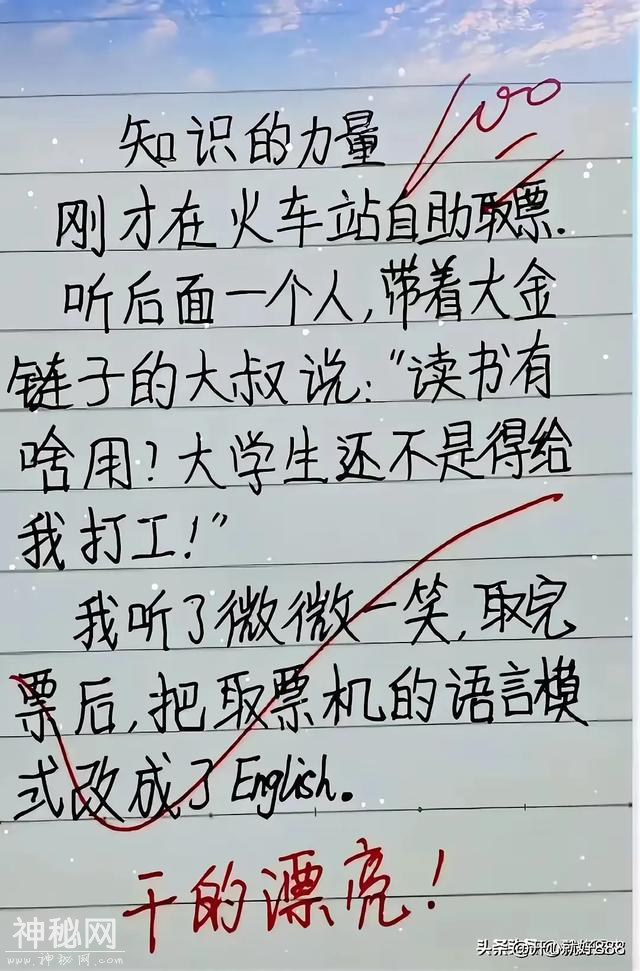 100
知识的力量
刚才在火车站自助取票.
听后面一个人,带着大金
链子的大叔说:“读书有
啥用?大学生还不是得给
我打工!”
我听了微微一笑,取完
票后,把取票机的语言模
式改成了English.
干的漂亮!
神秘网
www.神秘网.com